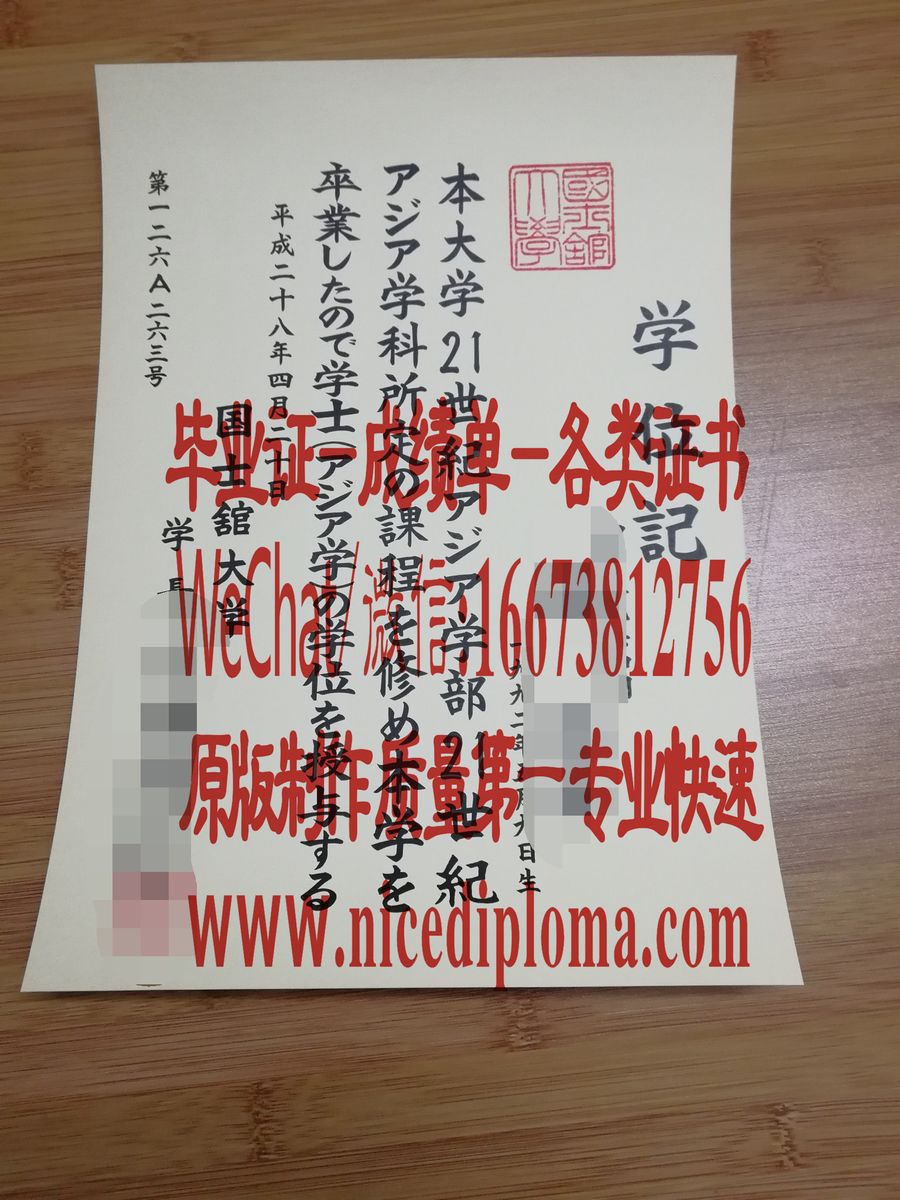 学位記
一九九二年五月九日生
國士舘大學
本大学21世紀アジア学部21世紀
アジア学科所定の課程を修め本学を
卒業したので学士(アジア学)の学位を授与する
平成二十八年四月二十日
国士舘大学
学長
第一二六A二六三号
毕业证-成绩单-各类证书
WeChat/微信:16673812756
原版制作质量第一专业快速
www.nicediploma.com